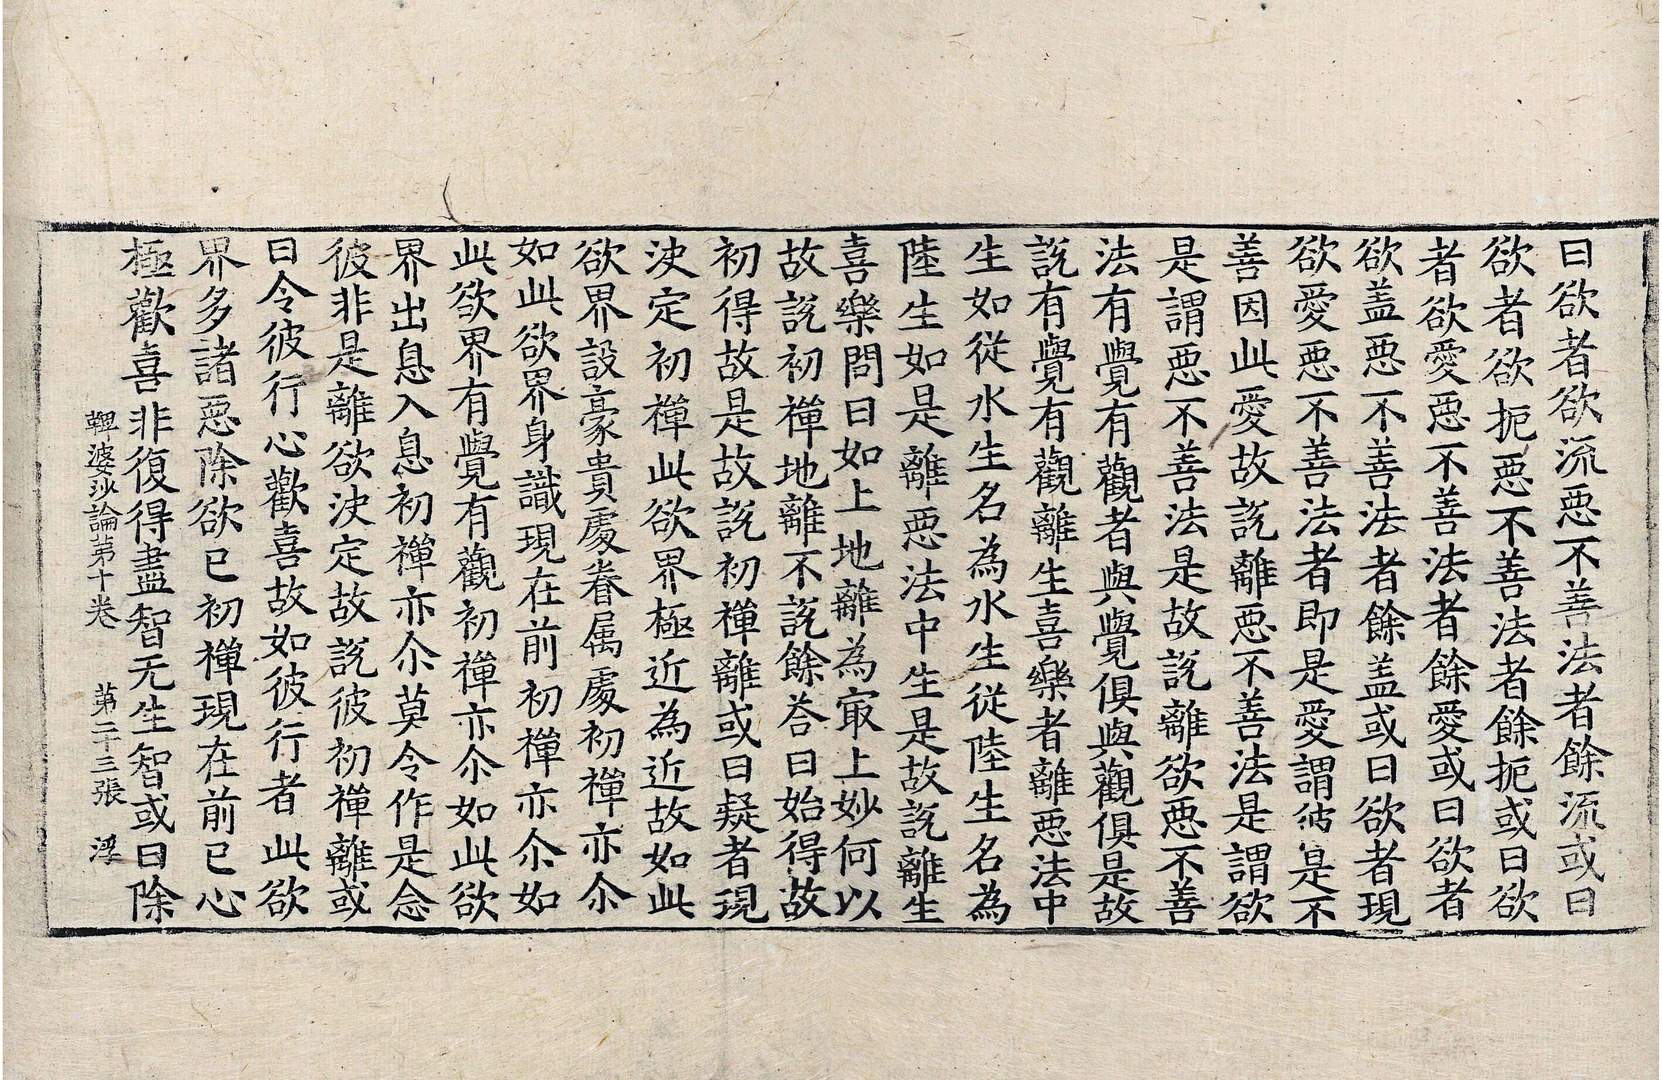 曰欲者欲流惡不善法者餘流或曰
欲者欲扼惡不善法者餘扼或曰欲
者欲愛惡不善法者餘愛或曰欲者
欲盖惡不善法者餘盖或曰欲者現
欲愛惡不善法者即是愛謂彼是不
善因此愛故說離惡不善法是謂欲
是謂惡不善法是故說離欲惡不善
法有覺有觀者與覺俱與觀俱是故
說有覺有觀離生喜樂者離惡法中
生如從水生名為水生從陸生名為
陸生如是離惡法中生是故說離生
喜樂問曰如上地離為㝡上妙何以
故說初禪地離不說餘荅曰始得故
初得故是故說初禪離或曰疑者現
決定初禪此欲界極近為近故如此
欲界設豪貴處眷属處初禪亦尒
如此欲界身識現在前初禪亦尒如
此欲界有覺有觀初禪亦尒如此欲
界出息入息初禪亦尒莫令作是念
彼非是離欲決定故說彼初禪離或
曰令彼行心歡喜故如彼行者此欲
界多諸惡除欲已初禪現在前已心
極歡喜非復得盡智无生智或曰除
鞞婆沙論第十卷 第二十三張 浮